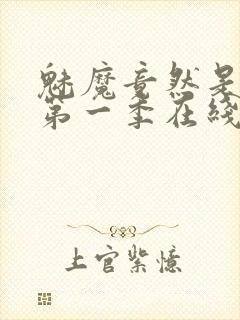 魅魔竟然是
第一季在线
上官紫忆